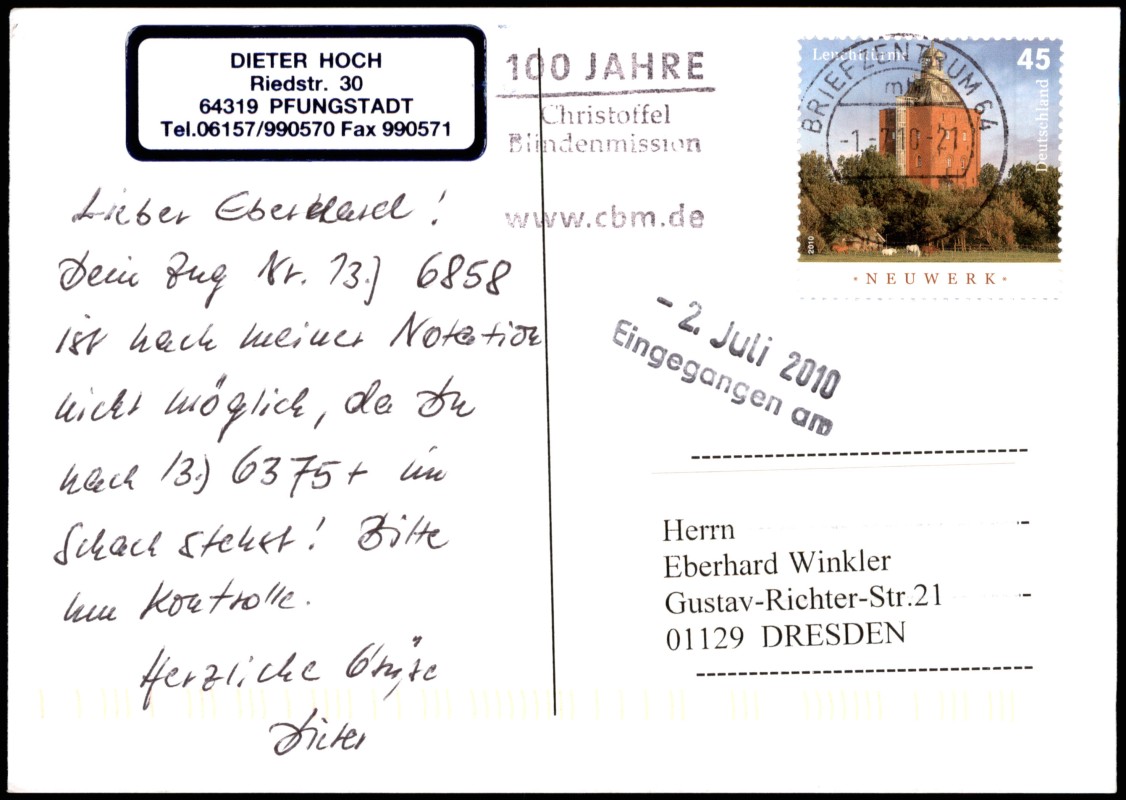 DIETER HOCH
Riedstr. 30
64319 PFUNGSTADT
Tel.06157/990570 Fax 990571
Lieber Eberhard!
Dein Zug Nr. 13.) 6858
ist nach meiner Notation
nicht möglich, da Du
nach 13.) 6375+ im
Schach stehst! Bitte
um Kontrolle.
Herzliche Grüße
Dieter
100 JAHRE
Christoffel
Blindenmission
www.cbm.de
Leuchttürme
45
Deutschland
2010
NEUWERK
BRIEFZENTRUM 64
- 2. Juli 2010
Eingegangen am
Herrn
Eberhard Winkler
Gustav-Richter-Str.21
01129 DRESDEN